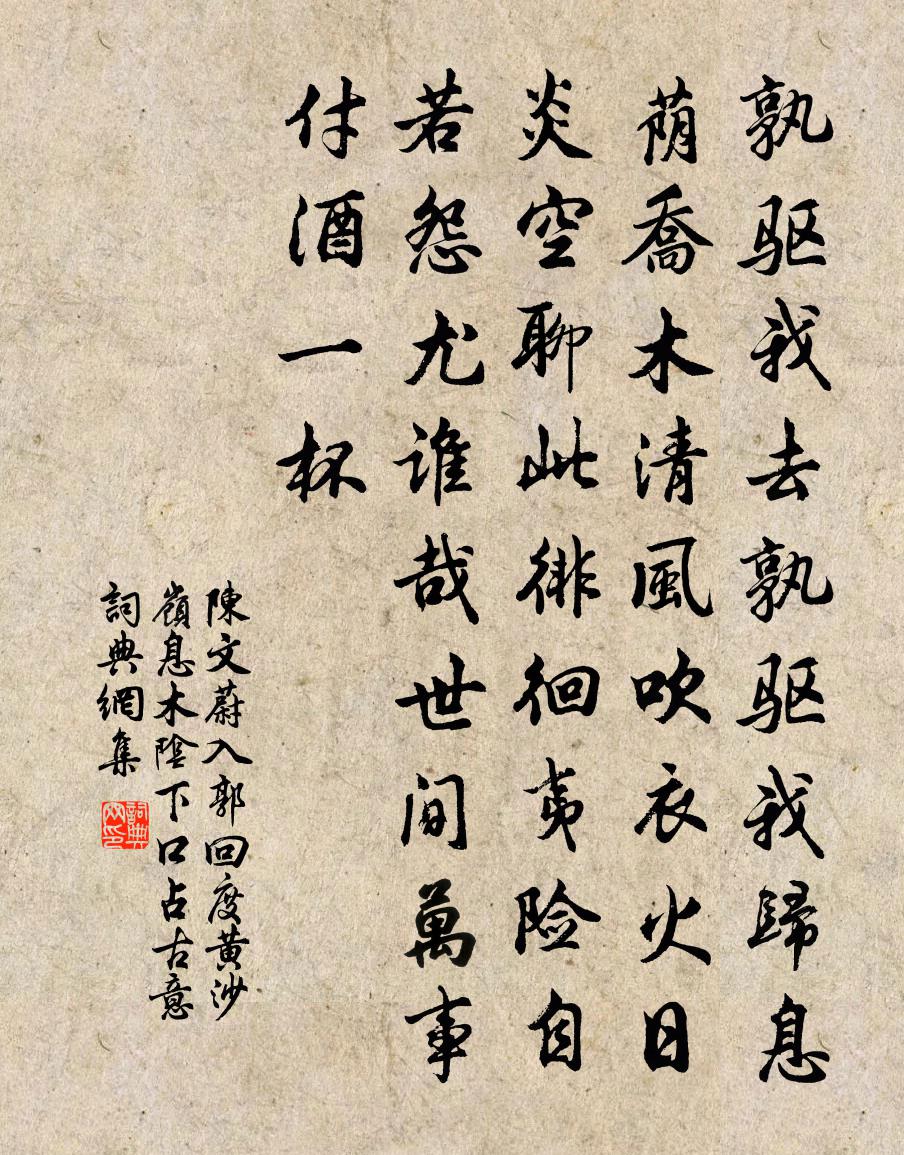 孰驱我去孰驱我歸息
荫喬木清風吹衣火日
炎空聊此徘徊夷险自
若怨尤谁哉世间萬事
付酒一杯
陳文蔚入郭回度黄沙
嶺息木陰下口占古意
詞典網集
詞典网印